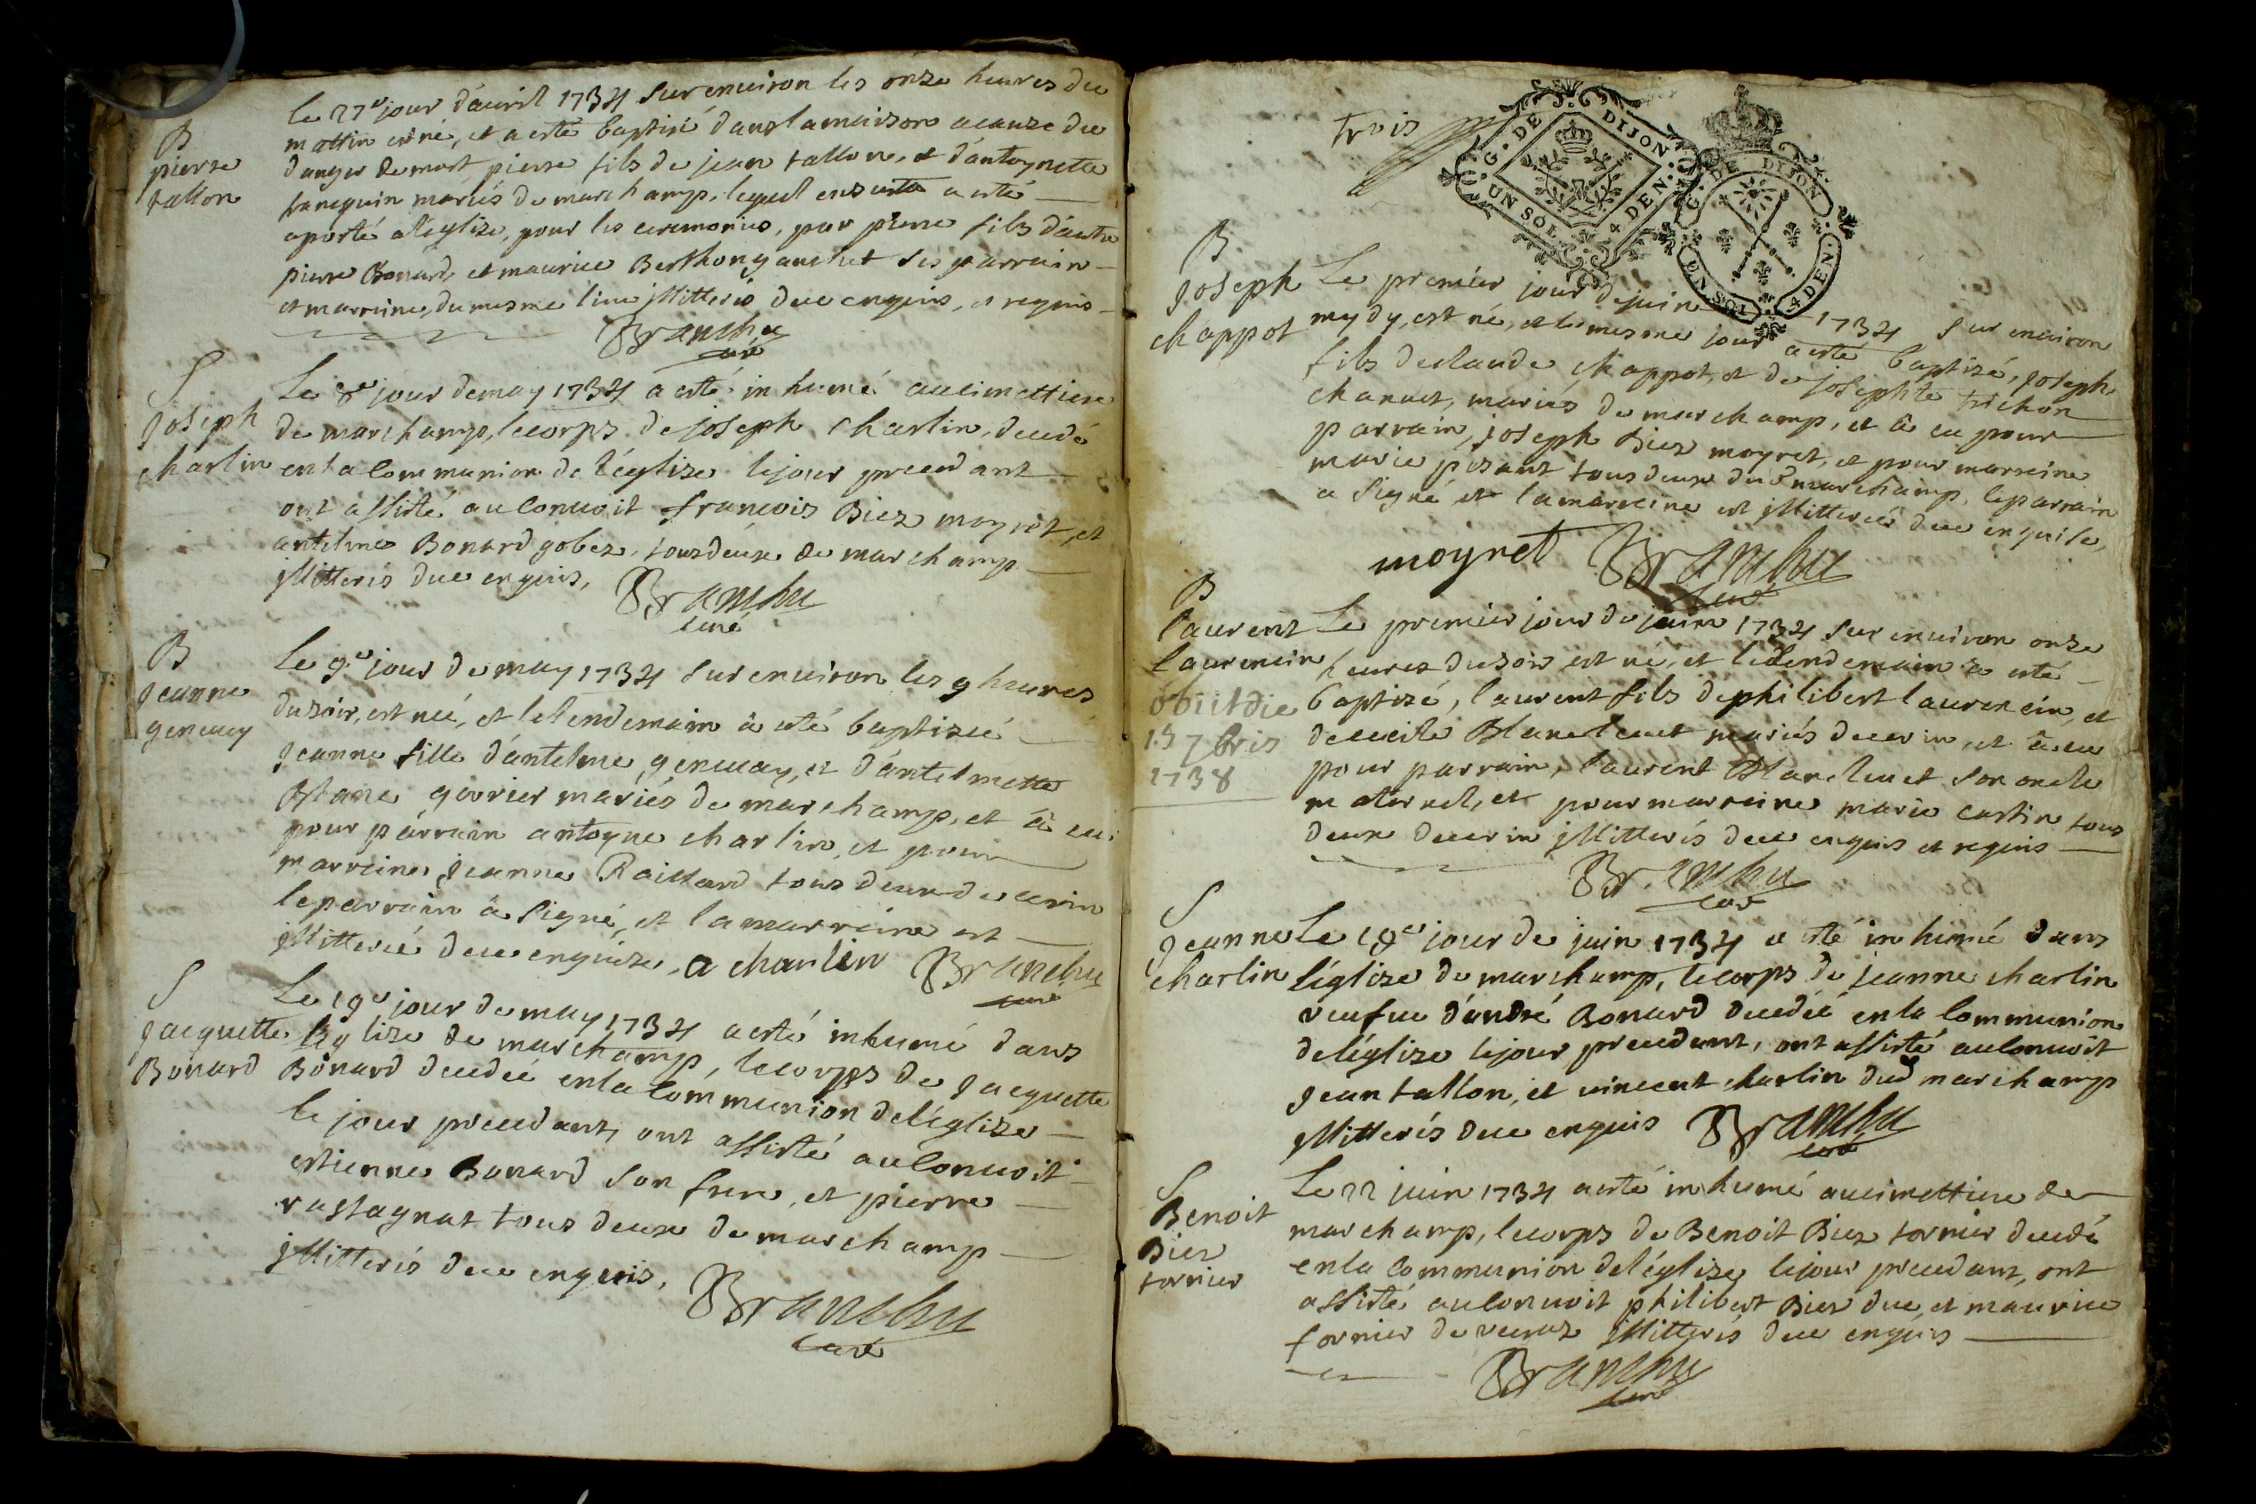 B
pierre
tallon
le 27e jour d'auril 1734 sur enuiron les onze heures du
mattin est né, et a esté baptisé dans la maison a cause du
danger de mort pierre fils de jean tallon, et d'antoynette
mariés de marchamp, lequel ensuitte a esté
aporté a l'eglize, pour les ceremonies, par pierre fils d'autre
pierre Bonard, et maurice Berthon ses parrain
et marreine, du mesme lieu jllitterés due enquis, et requis
Branchu
curé
S
Joseph
charlin
Le 8e jour de may 1734 a esté inhumé au cimettiere
de marchamp, le corps de joseph Charlin, decedé
en la Communion de l'églize le jour precedant
ont assisté au Conuoit francois Biez moyret, et
antelme Bonard gobez, tous deux de marchamp
jllitterés due enquis,
Branchu
curé
B
Jeanne
geneuey
Le 9e jour de may 1734 sur enuiron les 9 heures
du soir, est neé, et le lendemain â esté baptiseé
Jeanne fille d'antelme genuay, et d'antelmette
gourier mariés de marchamp, et â eu
pour parrain antoyne charlin, et pour
marreine, jeanne Raissard tous deux de cerin
le parrain â signé, et la marreine est
jllitereé due enquize,
a charlin
Branchu
curé
S
Jacquette
Bonard
Le 19e jour de may 1734 a esté inhumé dans
l'eglize de marchamp, le corps de Jacquette
Bonard decedeé en la Communion de l'églize
le jour precedant, ont assisté au Conuoit
estienne Bonard son frere, et pierre
rastagnat tous deux de marchamp
jllitterés due enquis,
Branchu
curé
trois
G. DE DIJON.
UN SOL 4 DEN.
G. DE DIJON
UN SOL 4 DEN.
B
Joseph
chappot
Le premier jour de juin 1734 sur enuiron
mydy, est né, et le mesme jour a esté baptizé, Joseph
fils de claude chappot, et de josephte trichon
chanuet, mariés de marchamp, et â eu pour
parrain, joseph Biez moyret, et pour marreine
marie pizant tous deux dud marchamp, le parrain
a signé et la marreine est jllittereé due enquise,
moyret
Branchu
curé
B
laurent
laurencin
obiit die
15 7bris
1738
Le premier jour de juin 1734 sur enuiron onze
heures du soir est né, et le lendemain â esté
baptizé, laurent fils de philibert laurencin, et
de mariés de cerin, et â eu
pour parrain, laurent son oncle
maternel, et pour marreine marie castin tous
deux de cerin jllitterés due enquis et requis
Branchu
curé
S
Jeanne
charlin
Le 18e jour de juin 1734 a esté inhumé dans
l'églize de marchamp, le corps de jeanne charlin
veufue d'andré Bonard decedeé en la Communion
de l'églize le jour precedant, ont assisté au Conuoit
Jean tallon, et vincent charlin dud marchamp
jllitterés due enquis
Branchu
curé
S
Benoit
Biez
tornier
Le 22 juin 1734 a esté inhumé au cimettiere de
marchamp, le corps de Benoit Biez tornier decedé
en la Communion de l'églize le jour precedant, ont
assisté au Conuoit philibert Biez duc, et maurice
fornier de jllitterés due enquis
Branchu
curé